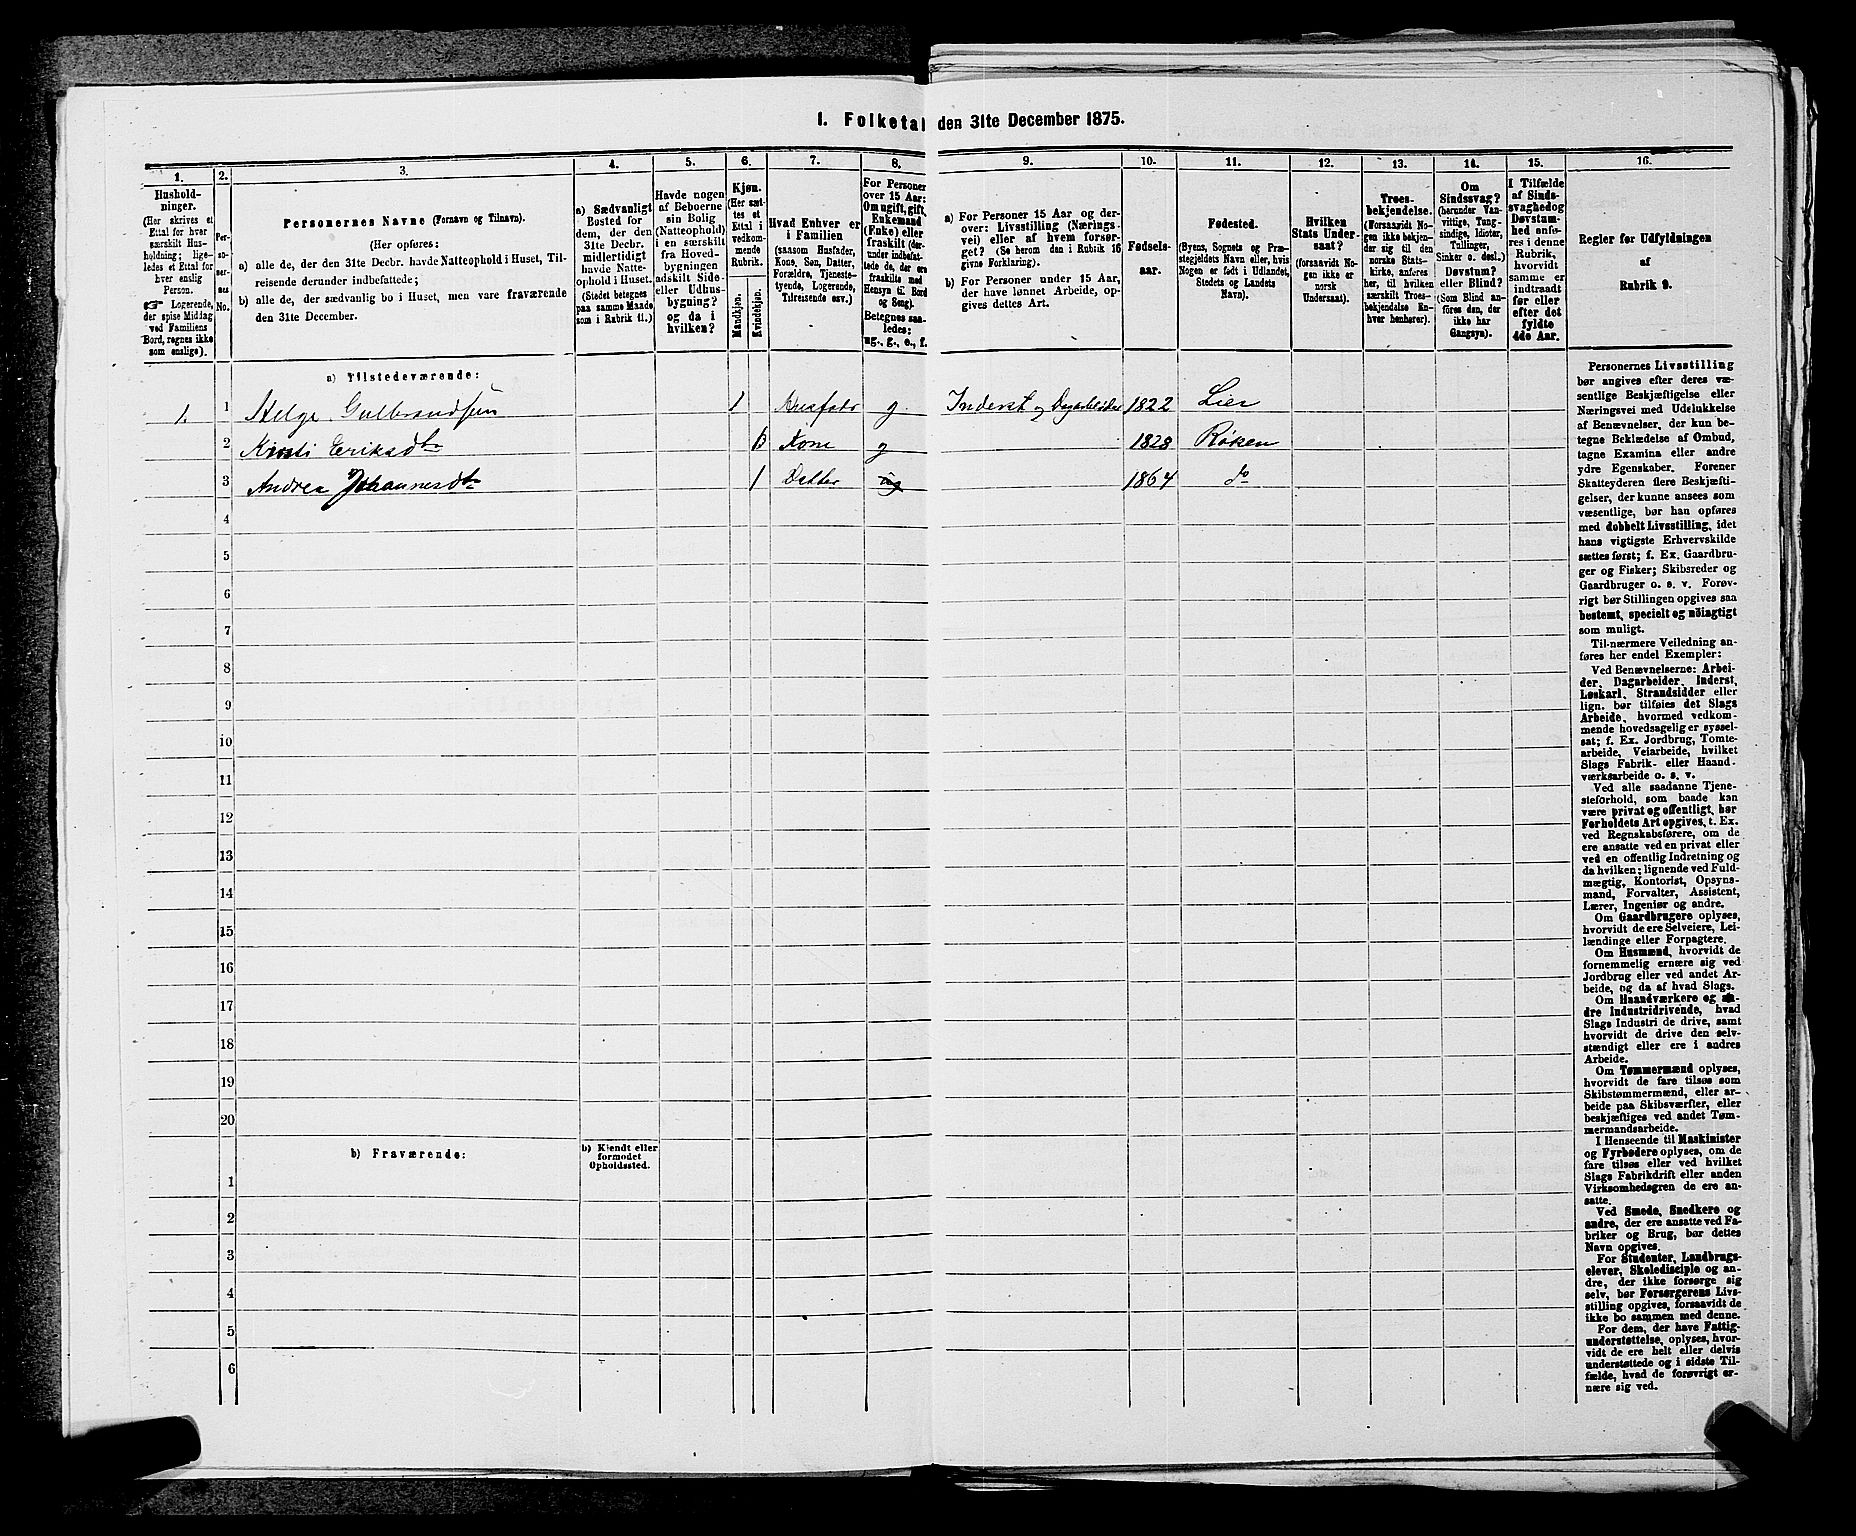 1. Folketal den 31te December 1875.
1.
Hushold-
ninger.
(Her skrives et
Ettal for hver
særskilt Hus-
holdning; lige-
ledes et Ettal for
hver enslig
Person.
☞ Logerende,
der spise Middag
ved Familiens
Bord, regnes ikke
som enslige).
2.
Per-
so-
ner-
nes
No.
3.
Personernes Navne (Fornavn og Tilnavn).
(Her opføres:
a) alle de, der den 31te Decbr. havde Natteophold i Huset, Til-
reisende derunder indbefattede;
b) alle de, der sædvanlig bo i Huset, men vare fraværende
den 31te December.
4.
a) Sædvanligt
Bosted for
dem, der den
31te Decbr.
midlertidigt
havde Natte-
ophold i Huset.
(Stedet betegnes
paa samme Maade
som i Rubrik 11.)
5.
Havde nogen
af Beboerne
sin Bolig
(Natteophold)
i en særskilt
fra Hoved-
bygningen
adskilt Side-
eller Udhus-
bygning?
og da i
hvilken?
6.
Kjøn.
(Her sæt-
tes et
Ettal i
vedkom-
mende
Rubrik.
Mandkjøn.
Kvindekjøn.
7.
Hvad Enhver er
i Familien
(saasom Husfader,
Kone, Søn, Datter,
Forældre, Tjeneste-
tyende, Logerende,
Tilreisende osv.)
8.
For Personer
over 15 Aar:
Om ugift, gift,
Enkemand
(Enke) eller
fraskilt (der-
under indbefat-
tede de, der ere
fraskilte med
Hensyn til Bord
og Seng).
Betegnes saa-
ledes:
ug., g., e., f.
9.
a) For Personer 15 Aar og der-
over: Livsstilling (Nærings-
vei) eller af hvem forsør-
get? (Se herom den i Rubrik 16
givne Forklaring).
b) For Personer under 15 Aar,
der have lønnet Arbeide, op-
gives dettes Art.
10.
Fødsels-
aar.
11.
Fødested.
(Byens, Sognets og Præ-
stegjeldets Navn eller, hvis
Nogen er født i Udlandet,
Stedets og Landets
Navn).
12.
Hvilken
Stats Under-
saat?
(forsaavidt No-
gen ikke er
norsk
Undersaat).
13.
Troes-
bekjendelse.
(Forsaavidt No-
gen ikke bekjen-
der sig til den
norske Stats-
kirke, anføres
her, til hvilken
særskilt Troes-
bekjendelse En-
hver henhører).
14.
Om
Sindssvag?
(herunder Van-
vittige, Tung-
sindige, Idioter,
Tullinger,
Sinker o. desl.)
Døvstum?
eller Blind?
(Som Blind an-
føres den, der
ikke har
Gangsyn).
15.
I Tilfælde
af Sinds-
svaghed og
Døvstum-
hed anfø-
res i denne
Rubrik,
hvorvidt
samme er
indtraadt
før eller
efter det
fyldte
4de Aar.
16.
Regler for Udfyldningen
af
Rubrik 9.
a) Tilstedeværende:
1. 1 Helge Gulbrandsen 1 Husfader g Inderst og Dagarbeider 1822 Lier
2 Kirsti Eriksdtr 1 Kone g 1828 Røken
3 Andrea Johannesdtr 1 Datter ug 1864 do
4
5
6
7
8
9
10
11
12
13
14
15
16
17
18
19
20
b) Fraværende:
b) Kjendt eller
formodet
Opholdssted.
1
2
3
4
5
6
Personernes Livsstilling
bør angives efter deres væ-
sentlige Beskjæftigelse eller
Næringsvei med Udelukkelse
af Benævnelser, der kun be-
tegne Beklædelse af Ombud,
tagne Examina eller andre
ydre Egenskaber. Forener
Skatteyderen flere Beskjæfti-
gelser, der kunne ansees som
væsentlige, bør han opføres
med dobbelt Livsstilling, idet
hans vigtigste Erhvervskilde
sættes først; f. Ex. Gaardbru-
ger og Fisker; Skibsreder og
Gaardbruger o. s. v. Forøv-
rigt bør Stillingen opgives saa
bestemt, specielt og nøiagtigt
som muligt.
Til nærmere Veiledning an-
føres her endel Exempler:
Ved Benævnelserne: Arbei-
der, Dagarbeider, Inderst,
Løskarl, Strandsidder eller
lign. bør tilføies det Slags
Arbeide, hvormed vedkom-
mende hovedsagelig er syssel-
sat; f. Ex. Jordbrug, Tomte-
arbeide, Veiarbeide, hvilket
Slags Fabrik- eller Haand-
værksarbeide o. s. v.
Ved alle saadanne Tjene-
steforhold, som baade kan
være privat og offentligt, bør
Forholdets Art opgives, t. Ex.
ved Regnskabsførere, om de
ere ansatte ved en privat eller
ved en offentlig Indretning og
da hvilken; lignende ved Fuld-
mægtig, Kontorist, Opsyns-
mand, Forvalter, Assistent,
Lærer, Ingeniør og andre.
Om Gaardbrugere oplyses,
hvorvidt de ere Selveiere, Lei-
lændinge eller Forpagtere.
Om Husmænd, hvorvidt de
fornemmelig ernære sig ved
Jordbrug eller ved andet Ar-
beide, og da af hvad Slags.
Om Haandværkere og an-
dre Industridrivende, hvad
Slags Industri de drive, samt
hvorvidt de drive den selv-
stændigt eller ere i andres
Arbeide.
Om Tømmermænd oplyses,
hvorvidt de fare tilsøs som
Skibstømmermænd, eller ar-
beide paa Skibsværfter, eller
beskjæftiges ved andet Tøm-
mermandsarbeide.
I Henseende til Maskinister
og Fyrbødere oplyses, om de
fare tilsøs eller ved hvilket
Slags Fabrikdrift eller anden
Virksomhedsgren de ere an-
satte.
Ved Smede, Snedkere og
andre, der ere ansatte ved Fa-
briker og Brug, bør dettes
Navn opgives.
For Studenter, Landbrugs-
elever, Skoledisciple og an-
dre, der ikke forsørge sig
selv, bør Forsørgerens Livs-
stilling opgives, forsaavidt de
ikke bo sammen med denne.
For dem, der have Fattig-
understøttelse, oplyses, hvor-
vidt de ere helt eller delvis
understøttede og i sidste Til-
fælde, hvad de forøvrigt er-
nære sig ved.